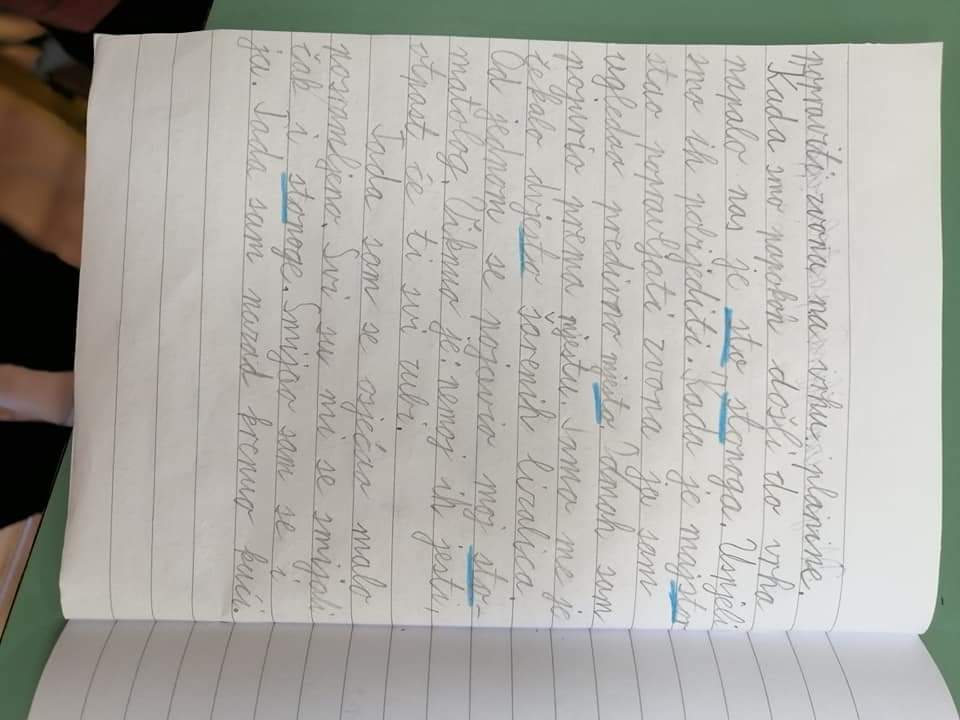 popraviti zvona na vrhu planine.
Kada smo napokon došli do vrha
napalo nas je sto stonoga. Uspjeli
smo ih pobijediti. Kada je majstor
stao popravljati zvona ja sam
ugledao predivno mjesto. Odmah sam
pojurio prema mjestu. Tamo me je
čekalo dvjesto šarenih lizalica.
Od jednom se pojavio moj sto-
matolog. Viknuo je: nemoj ih jesti,
otpast će ti svi zubi.
Tada sam se osjećao malo
posramljeno. Svi su mi se smijali
čak i stonoge. Smijao sam se i
ja. Tada sam nazad krenuo kući.